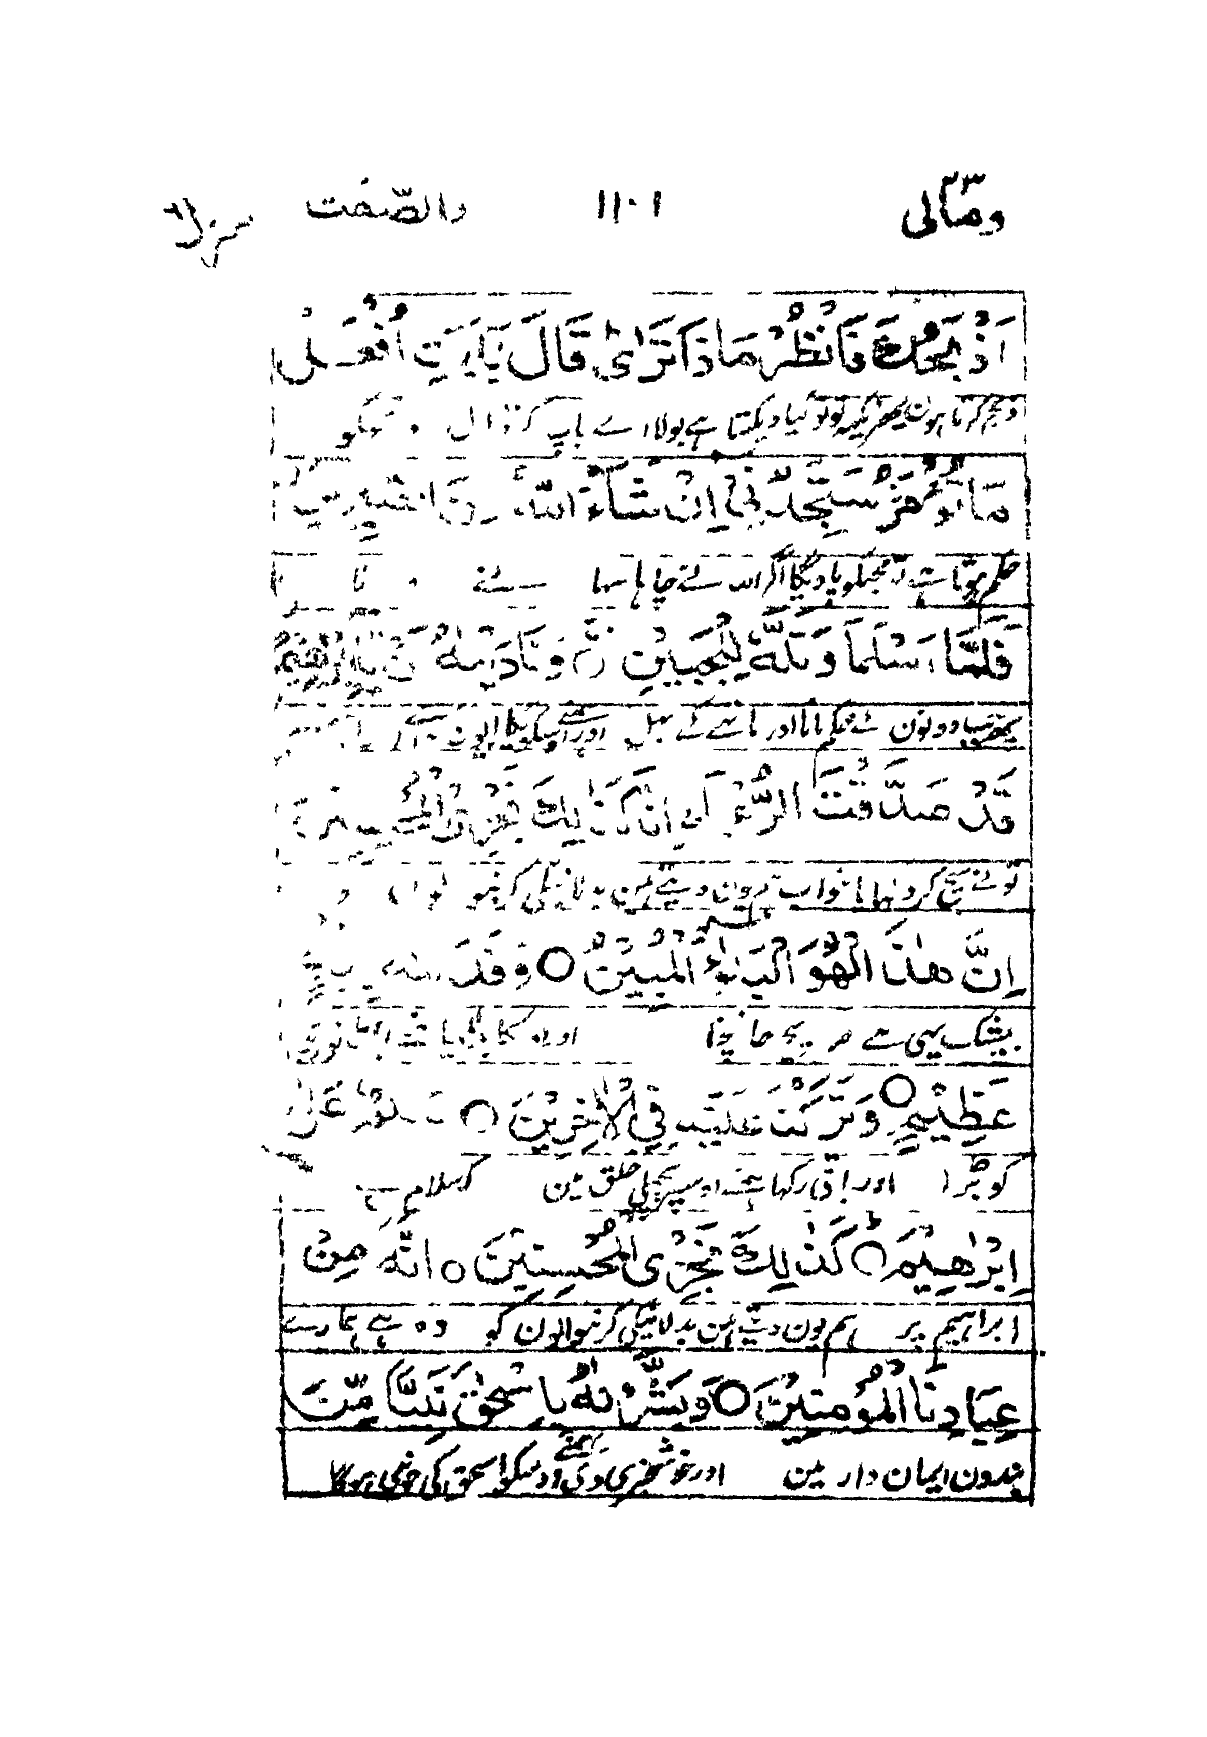 ومالی ٢٣ ١١٠١ والصّٰفّٰت
اَذْبَحُكَ فَانْظُرْ مَاذَا تَرٰى قَالَ يٰاَبَتِ افْعَلْ
ذبح کرتا ہون پھر دیکھ تو تو کیا دیکھتا ہے بولا اے باپ کر ڈال
مَا تُؤْمَرُ سَتَجِدُنِيْ اِنْ شَآءَ اللّٰهُ مِنَ الصّٰبِرِيْنَ
حکم ہوتا ہے تو مجھکو پاویگا اگر اللہ نے چاہا سہا
فَلَمَّا اَسْلَمَا وَتَلَّهٗ لِلْجَبِيْنِ وَنَادَيْنٰهُ اَنْ يّٰاِبْرٰهِيْمُ
پھر جب دونون نے حکم مانا اور ماتھے کے بل اور ہمنے اسکو پکارا یون
قَدْ صَدَّقْتَ الرُّءْيَا اِنَّا كَذٰلِكَ نَجْزِى الْمُحْسِنِيْنَ
تونے سچ کر دکھایا خواب ہم یون دیتے ہین بدلا نیکی کرنیوالون
اِنَّ هٰذَا لَهُوَ الْبَلٰٓؤُا الْمُبِيْنُ ○ وَفَدَيْنٰهُ بِذِبْحٍ
بیشک یہی ہے صریح جانچنا اور اسکا بدلا دیا ہمنے
عَظِيْمٍ ○ وَتَرَكْنَا عَلَيْهِ فِى الْاٰخِرِيْنَ ○ سَلٰمٌ عَلٰٓى
کو بڑا اور باقی رکھا ہمنے اوسپر پچھلی خلق مین کہ سلام ہے
اِبْرٰهِيْمَ ○ كَذٰلِكَ نَجْزِى الْمُحْسِنِيْنَ ○ اِنَّهٗ مِنْ
ابراہیم پر ہم یون دیتے ہین بدلا نیکی کرنیوالون کو وہ ہے ہمارے
عِبَادِنَا الْمُؤْمِنِيْنَ ○ وَبَشَّرْنٰهُ بِاِسْحٰقَ نَبِيًّا مِّنَ
بندون ایمان دار مین اور خوشخبری دی ہمنے اوسکو اسحق کی جو نبی ہوگا